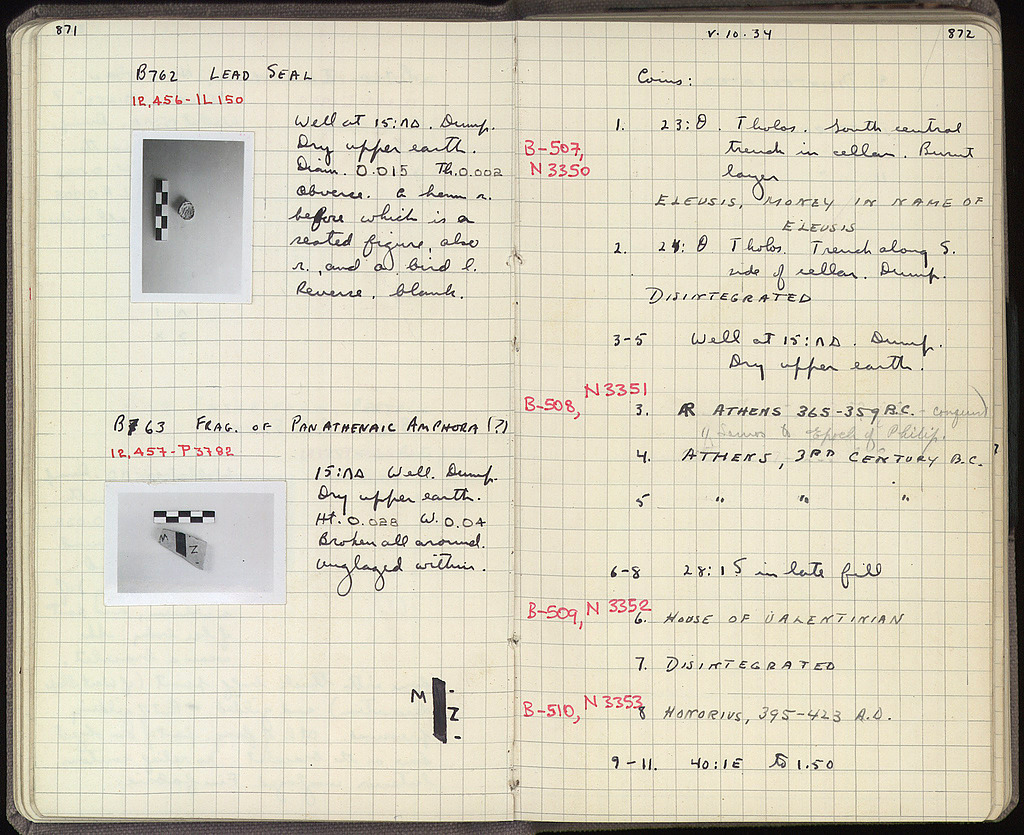 871
B762 LEAD SEAL
12,456-IL 150
Well at 15:ΛΔ. Dump.
Dry upper earth.
Diam. 0.015 Th. 0.002
Obverse. A herm r.
before which is a
seated figure, also
r., and a bird l.
Reverse. blank.
B763 FRAG. OF PANATHENAIC AMPHORA (?)
12,457-P3782
15:ΛΔ Well. Dump.
Dry upper earth.
Ht. 0.028 W. 0.04
Broken all around.
Unglazed within.
M
Z
M
Z
V.10.34 872
Coins:
1. 23:Θ. Tholos. South central
B-507, trench in cellar. Burnt
N 3350 layer
ELEUSIS, MONEY IN NAME OF
ELEUSIS
2. 24:Θ Tholos. Trench along S.
side of cellar. Dump.
DISINTEGRATED
3-5 Well at 15:ΛΔ. Dump.
Dry upper earth.
B-508, N3351
3. AR ATHENS 365-359 B.C. - conquest
of Samos to Epoch of Philip.
4. ATHENS, 3RD CENTURY B.C. ?
5 " " "
6-8 28:15 in late fill
B-509, N 3352
6. HOUSE OF VALENTINIAN
7. DISINTEGRATED
B-510, N 3353
8 HONORIUS, 395-423 A.D.
9-11. 40:ΙΕ to 1.50